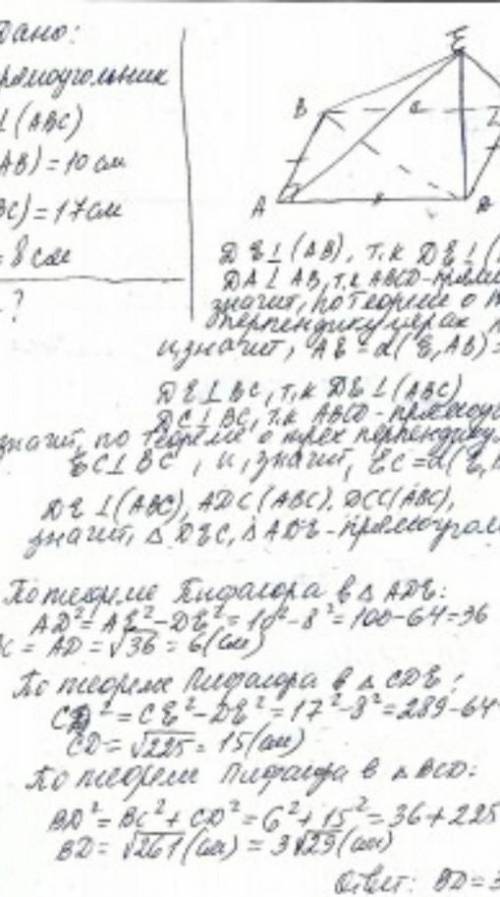 Дано:
прямоугольник
⊥(ABC)
AB)=10 см
BC)=17 см
=8 см
?
E
B
A
DE⊥(AB), т.к DE⊥(
DA⊥AB, т.к ABCD-прямо
значит, по теореме о
перпендикулярах
и значит, AE=d(E,AB)=
DE⊥BC, т.к DE⊥(ABC)
DC⊥BC, т.к ABCD-прямоуг
значит, по теореме о трёх перпендику
EC⊥BC, и, значит, EC=d(E,
DE⊥(ABC), ADC(ABC), DCC(ABC),
значит, △DEC, △ADE-прямоугол
По теореме Пифагора в △ADE:
AD²=AE²-DE²=10²-8²=100-64=36
C=AD=√36=6(см)
По теореме Пифагора в △CDE:
CD²=CE²-DE²=17²-8²=289-64
CD=√225=15(см)
По теореме Пифагора в △BCD:
BD²=BC²+CD²=6²+15²=36+225
BD=√261(см)=3√29(см)
Ответ: BD=3